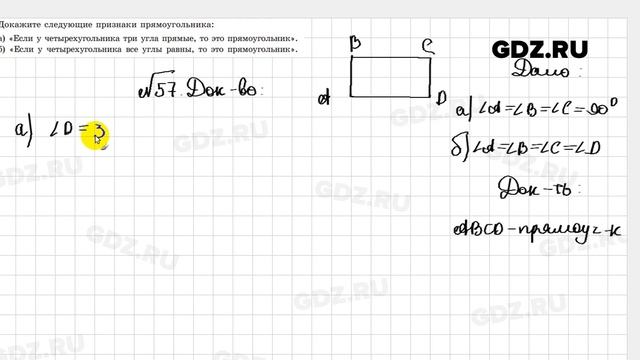 Докажите следующие признаки прямоугольника:
а) «Если у четырехугольника три угла прямые, то это прямоугольник».
б) «Если у четырехугольника все углы равны, то это прямоугольник».
GDZ.RU
B C
A D
√57. Док-во:
Дано:
а) ∠A=∠B=∠C=90°
б) ∠A=∠B=∠C=∠D
Док-ть:
ABCD-прямоуг-к
а) ∠D = 3
GDZ.RU
GDZ.RU
GDZ.RU
GDZ.RU
GDZ.RU
GDZ.RU
GDZ.RU